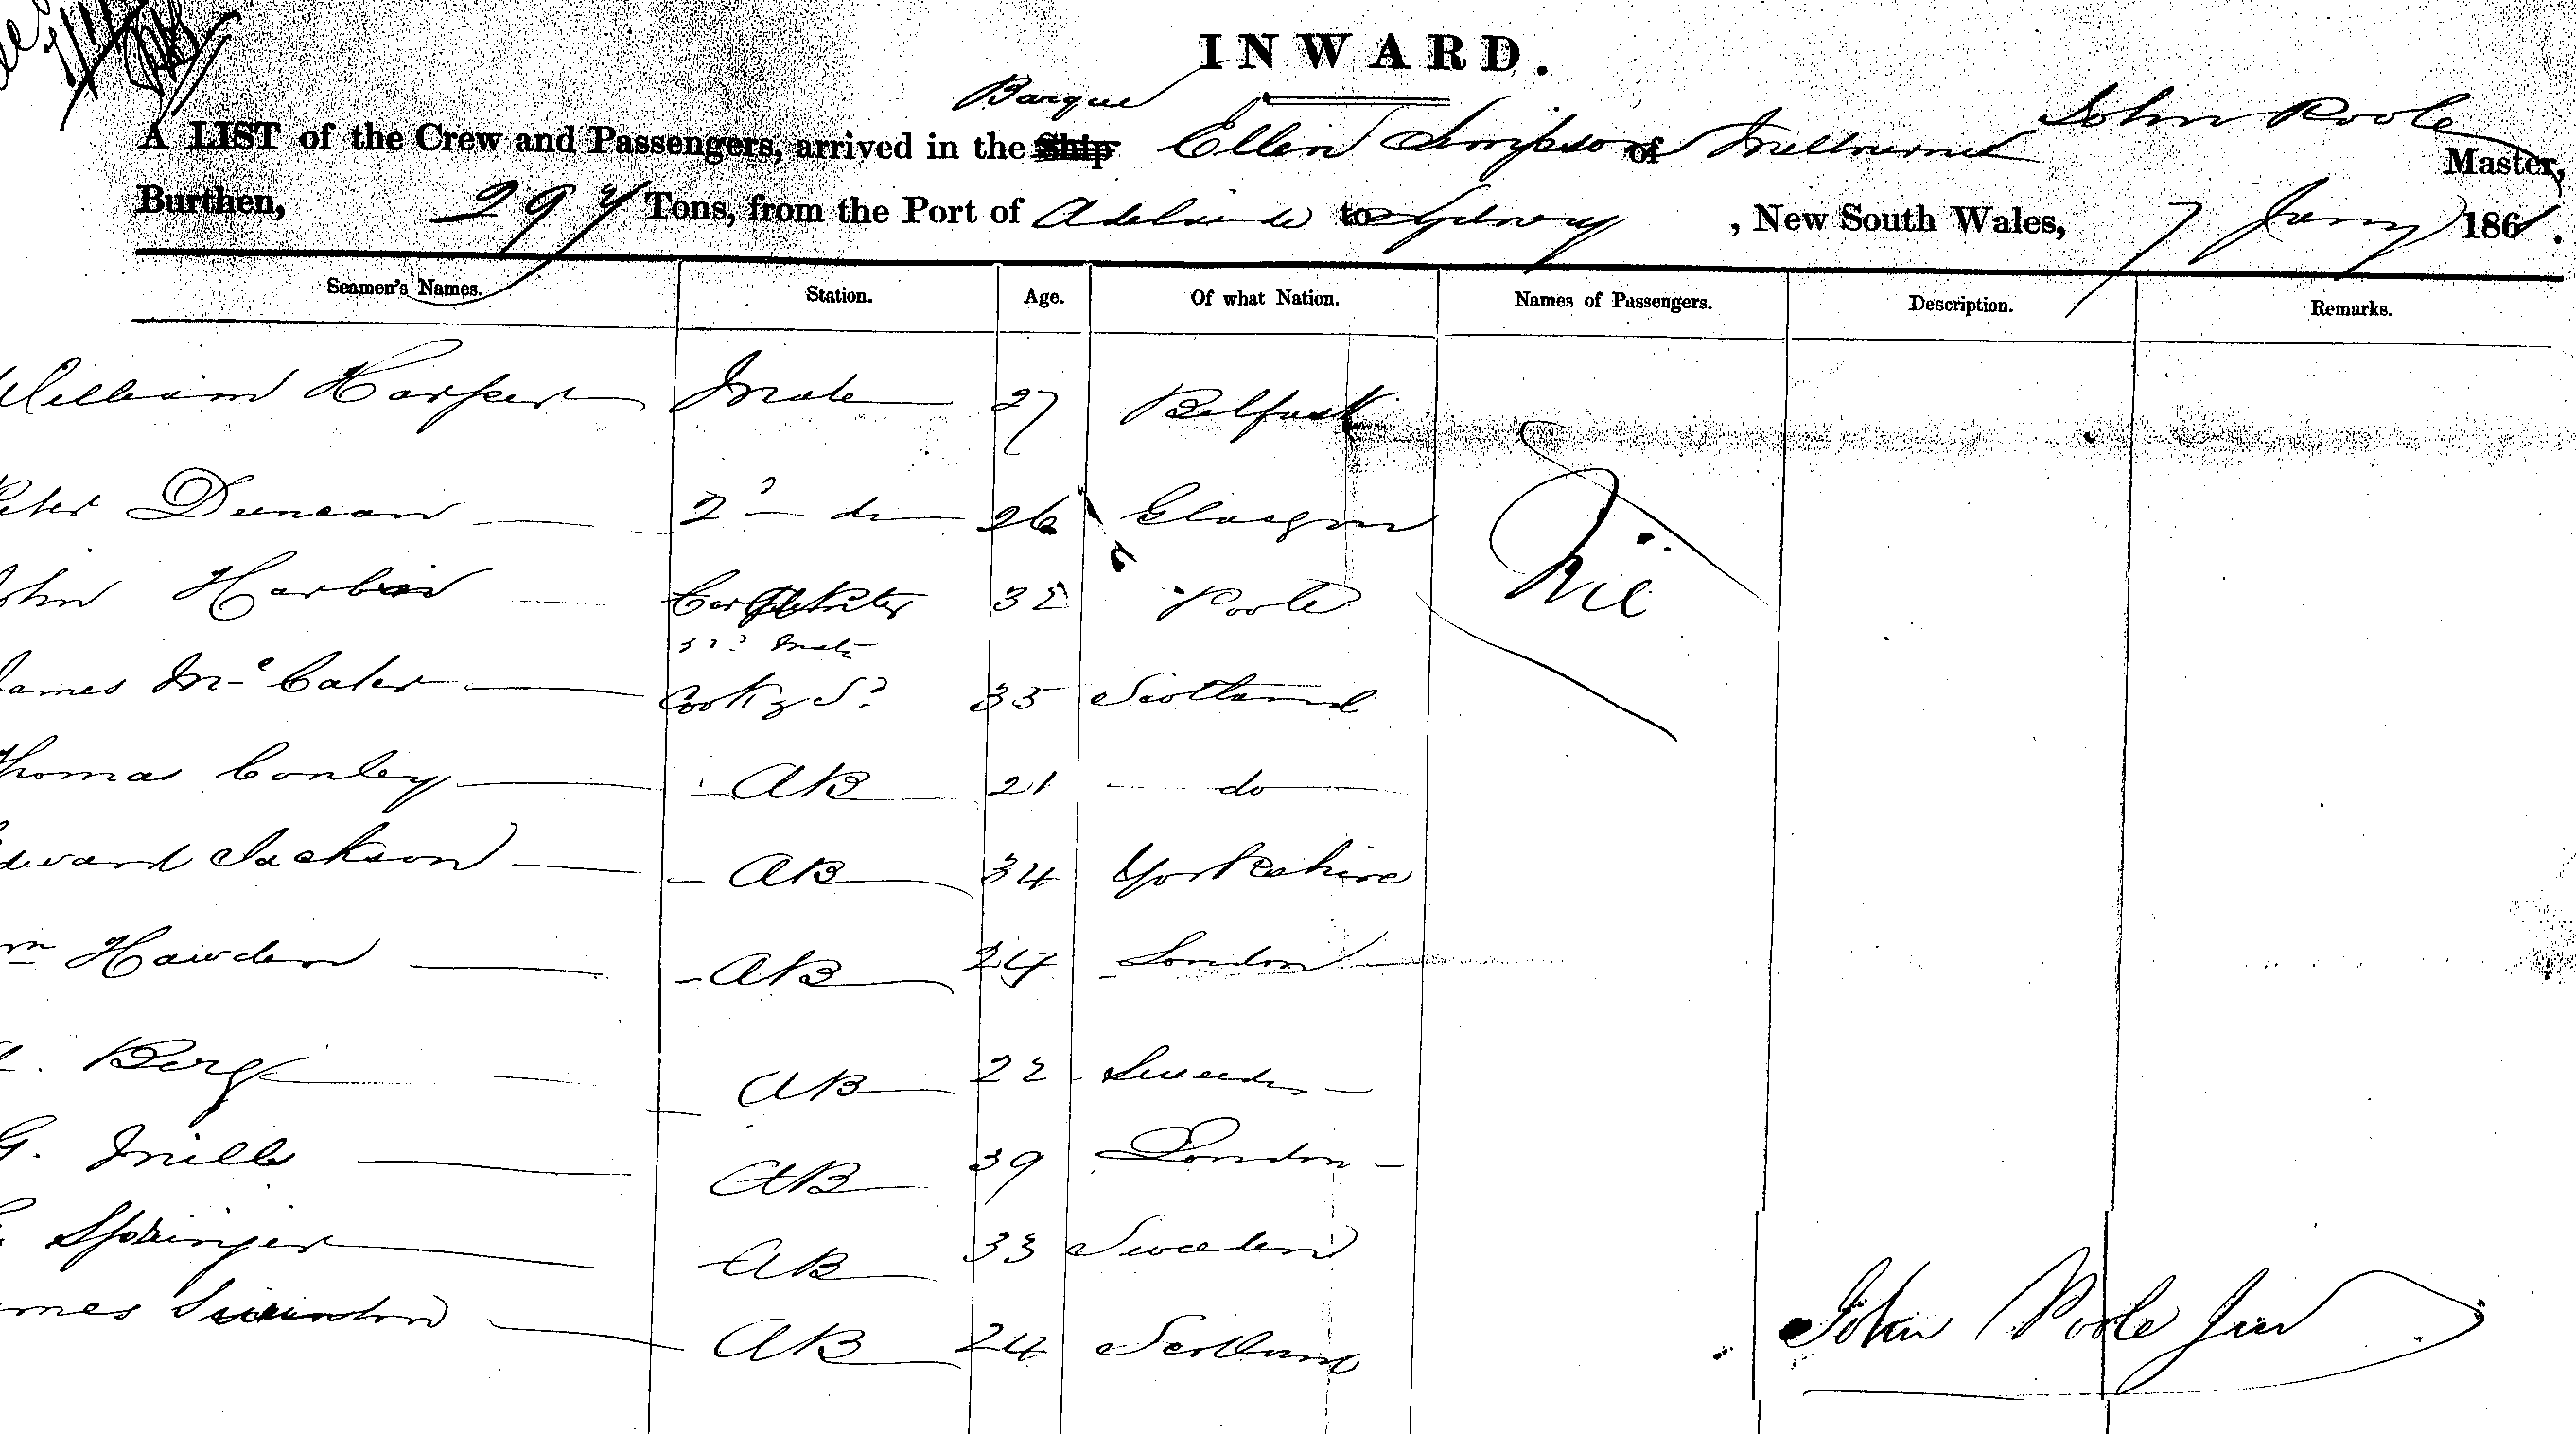 INWARD.
Barque
A LIST of the Crew and Passengers, arrived in the Ship Ellen Simpson of Melbourne John Poole Master,
Burthen, 297 Tons, from the Port of Adelaide to Sydney, New South Wales, 7 Jany 1861.
Seamen's Names. Station. Age. Of what Nation. Names of Passengers. Description. Remarks.
William Harper Mate 27 Belfast
Peter Duncan 2d do 26 Glasgow
Nil
John Harbin Carpenter 32 Poole
Mate
James Mc Cater Cook & Sd 35 Scotland
Thomas Conley AB 21 do
Edward Jackson AB 34 Yorkshire
Wm Hawden AB London
Berg AB 22 Sweden
G. Mills AB 39 London
Springer AB 33 Sweden
James Swinton AB 24 Scotland
John Poole Jun